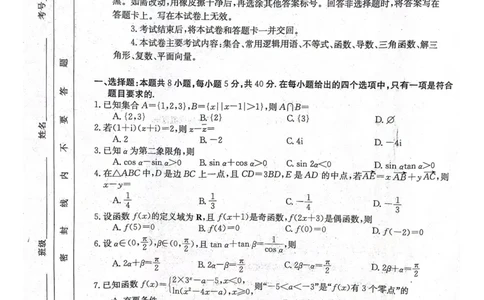 黑。如需改动,用橡皮擦干净后,再选涂其他答案标号。回答非选择题时,将答案写在
答题卡上。写在本试卷上无效。
3.考试结束后,将本试卷和答题卡一并交回。
4.本试卷主要考试内容:集合、常用逻辑用语、不等式、函数、导数、三角函数、解三
角形、复数、平面向量。
一、选择题:本题共8小题,每小题5分,共40分.在每小题给出的四个选项中,只有一项是符合
题目要求的.
1.已知集合A={1,2,3},B={x||x-1|>1},则A∩B=
A.{2,3} B.{2} C.{3} D.∅
2.若(1+i)(z+i)=2,则z-z̅=
A.2 B.-2 C.4i D.-4i
3.已知α为第二象限角,则
A.cos α-sin α>0 B.sin α+cos α>0 C.sin 2α<0 D.sin α tan α>0
4.在△ABC中,D是边BC上一点,且CD=3BD,E是AD的中点,若AE=xAB+yAC,则
x-y=
A.1/4 B.1/3 C.-1/4 D.-1/3
5.设函数f(x)的定义域为R,且f(x+1)是奇函数,f(2x+3)是偶函数,则
A.f(5)=0 B.f(4)=0 C.f(0)=0 D.f(-2)=0
6.设α∈(0,π/2),β∈(0,π/2),且tan α+tan β=1/cos α,则
A.2α+β=π/2 B.2α-β=π/2 C.2β-α=π/2 D.2β+α=π/2
7.已知函数f(x)={2×3ˣ-a-5,x<0, ln(x²-4x-a),x≥0, 则“-5<a<-3”是“f(x)有3个零点”的
考号
姓名
班级
密 封 线 内 不 要 答 题